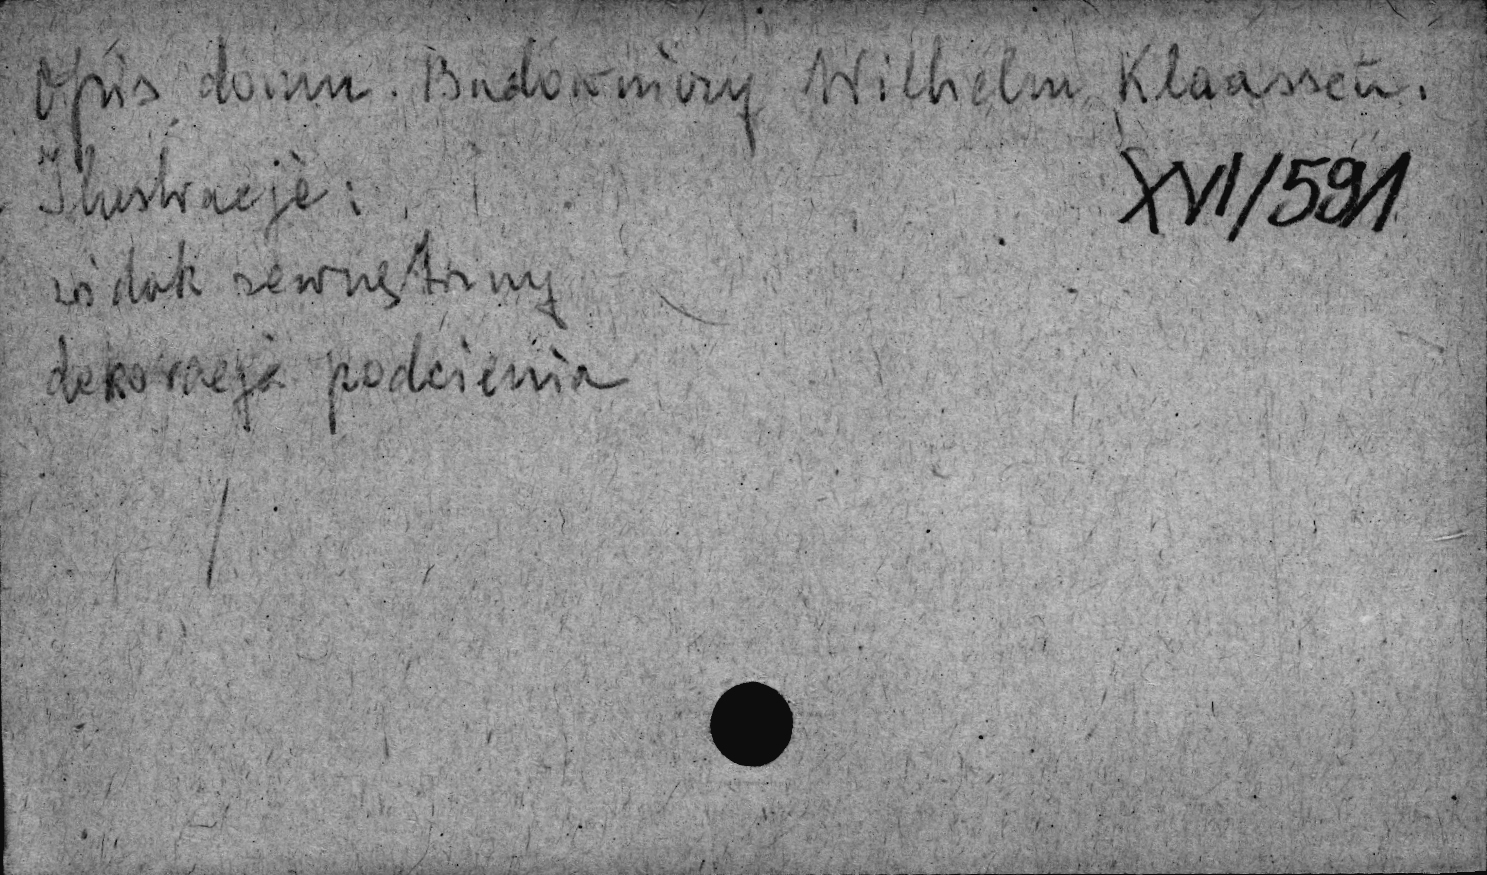 Opis domu. Budowniczy Wilhelm Klaassen.
Ilustracje:
XVI/591
widok zewnętrzny
dekoracja podcienia